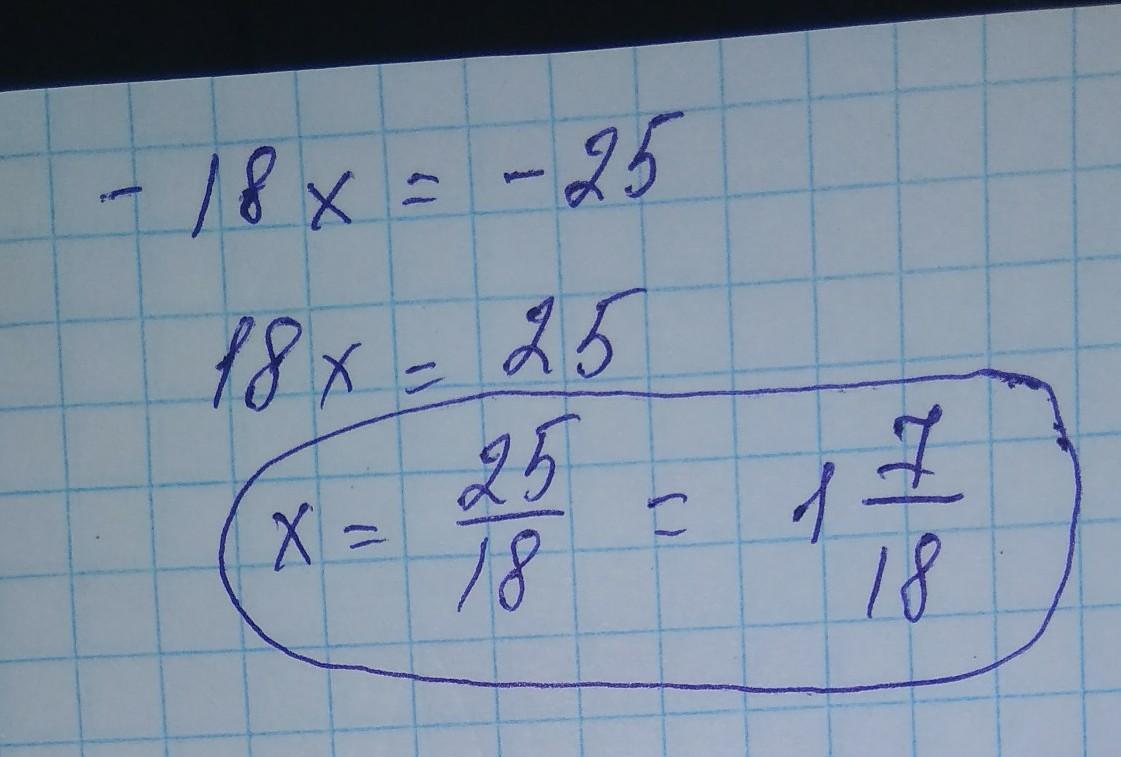 - 18x = - 25
18x = 25
x = 25/18 = 1 7/18